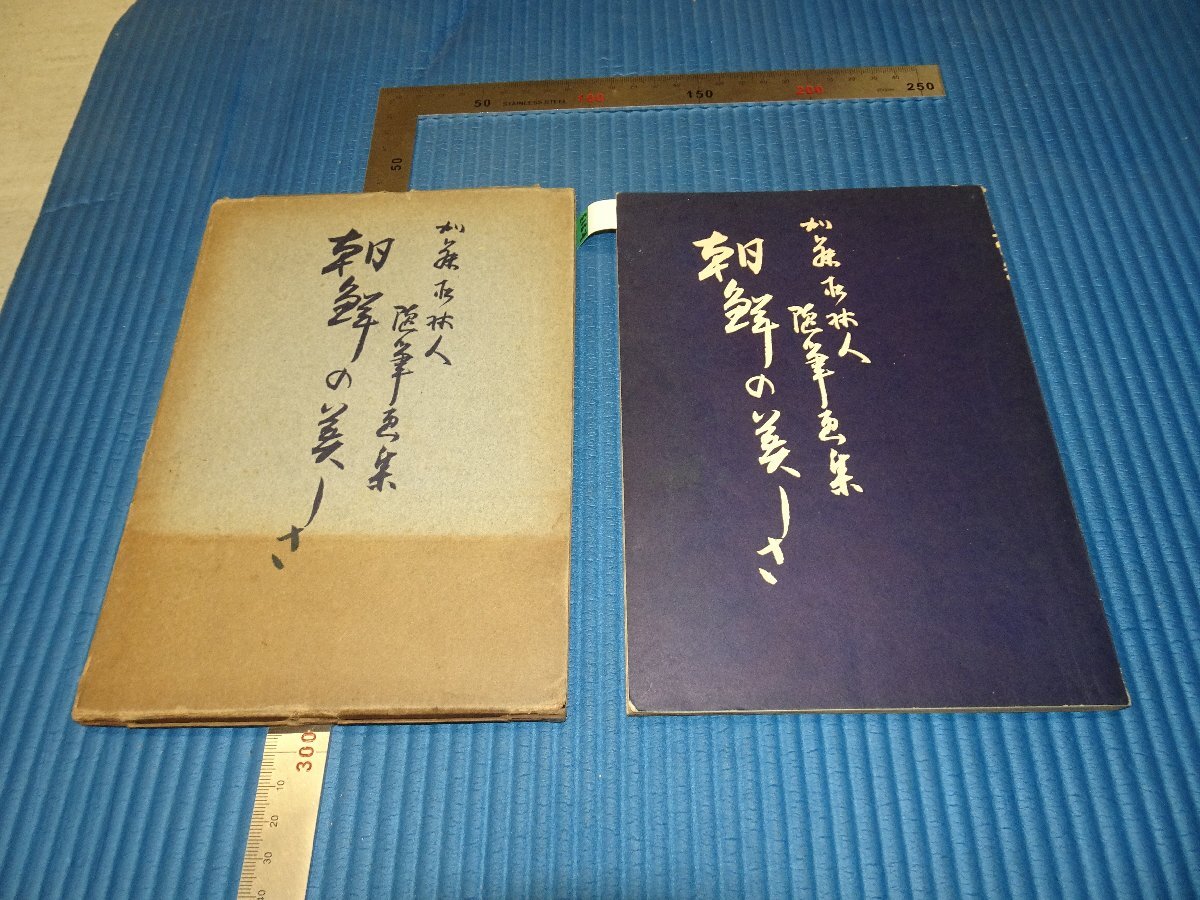 50 STAINLESS STEEL 100 150 200 250
50
加藤松林人
随筆画集
朝鮮の美しさ
加藤松林人
随筆画集
朝鮮の美しさ
300
10
20
30
40